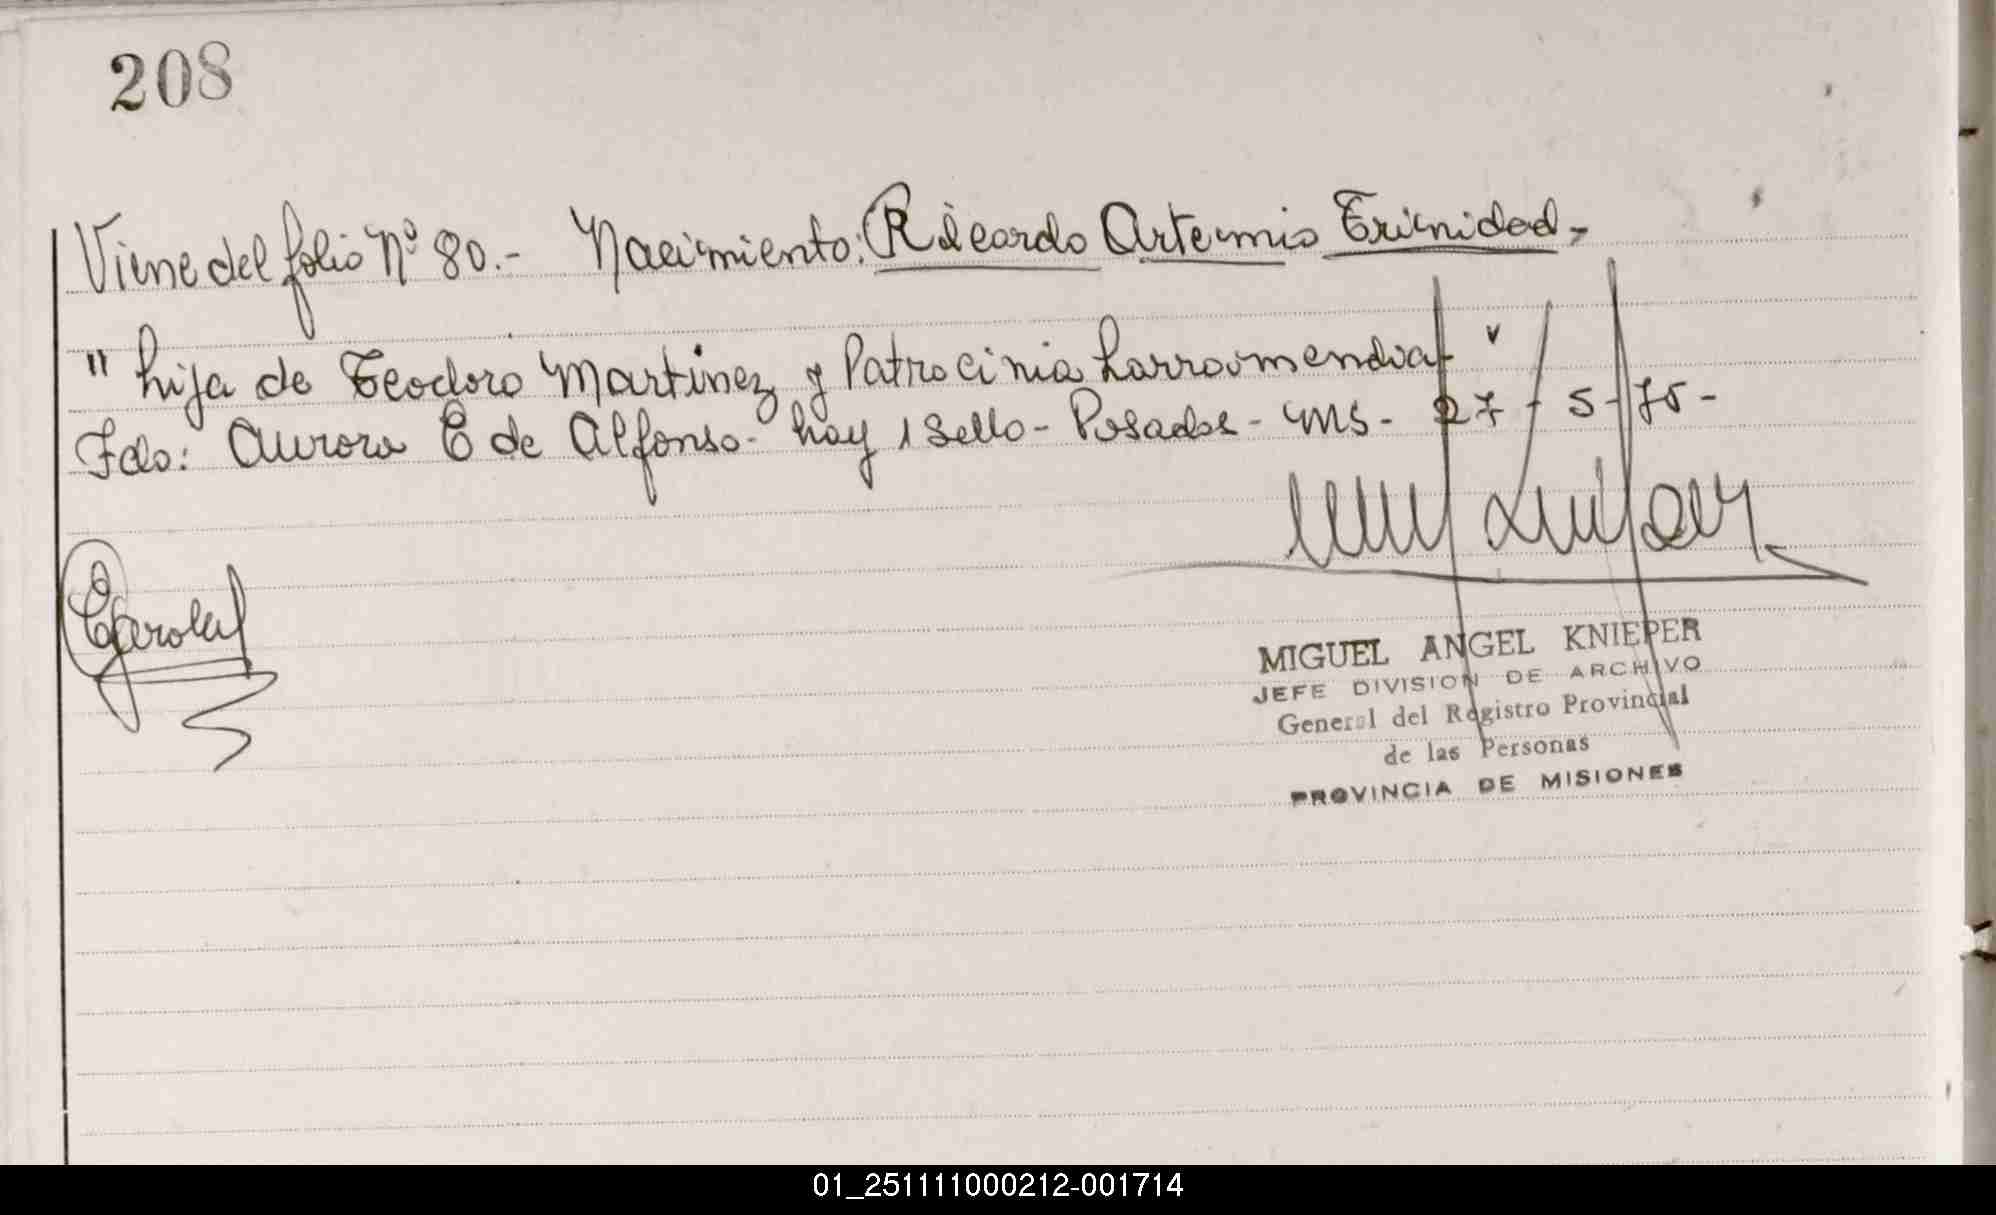 208
Viene del folio Nº 80.- Nacimiento: Ricardo Artemio Trinidad -
" hija de Teodoro Martinez y Patrocinia Larroumendia "
Fdo: Aurora E de Alfonso - hay 1 sello - Posadas - Ms - 27 - 5 - 75 -
MIGUEL ANGEL KNIEPER
JEFE DIVISION DE ARCHIVO
General del Registro Provincial
de las Personas
PROVINCIA DE MISIONES
01_251111000212-001714